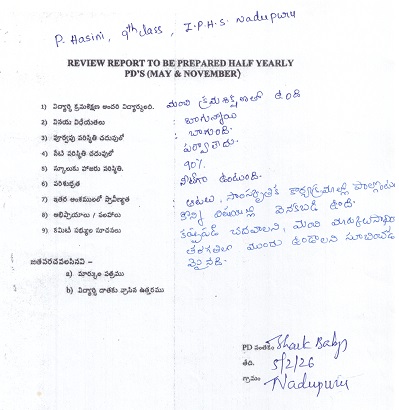 P. Hasini, 9th class, Z.P.H.S. Nadupuru
REVIEW REPORT TO BE PREPARED HALF YEARLY
PD'S (MAY & NOVEMBER)
1) విద్యార్థి క్రమశిక్షణ అందరి విద్యార్థులంది. మంచి క్రమశిక్షణతో ఉంది
2) వినయ విధేయతలు : బాగున్నాయి
3) పూర్వపు పరిస్థితి చదువులో : బాగుంది.
4) నేటి పరిస్థితి చదువులో పర్వాలేదు.
5) స్కూలుకు హాజరు పరిస్థితి. 90%
6) పరిశుభ్రత : నీట్‌గా ఉంటుంది.
7) ఇతర అంశములలో ప్రావీణ్యత : ఆటలు, సాంస్కృతిక కార్యక్రమాల్లో పాల్గొంటుంది
8) అభిప్రాయాలు / ఫలితాలు కొన్ని విషయాల్లో వెనకబడి ఉంది.
9) కమిటీ సభ్యుల సూచనలు కష్టపడి చదవాలని, మంచి మార్కులు
తరగతిలో ముందు ఉండాలని సూచించడ
మైనది.
జతపరచవలసినవి –
a) మార్కుల పత్రము
b) విద్యార్థి దాతకు వ్రాసిన ఉత్తరము
PD సంతకం
తేది. 5/2/26
గ్రామం Nadupuru